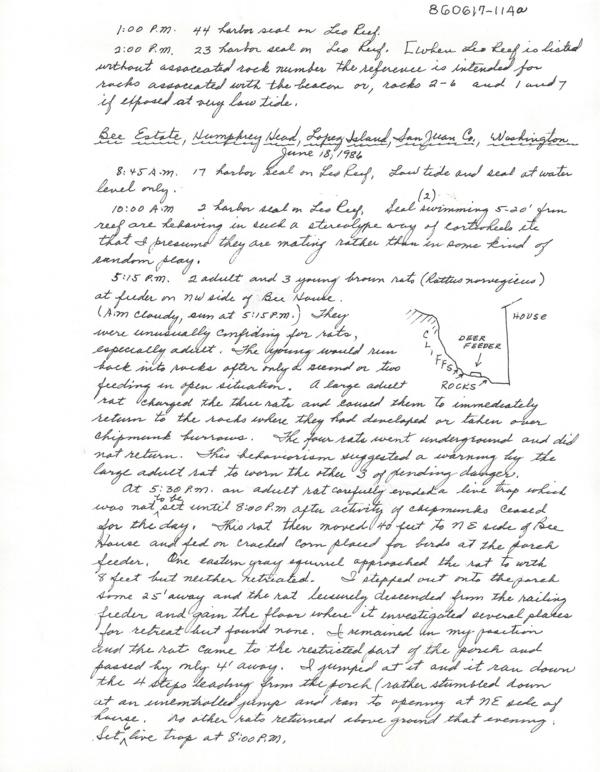 860617-114a
1:00 P.M. 44 harbor seal on Leo Reef.
2:00 P.M. 23 harbor seal on Leo Reef. [When Leo Reef is listed
without associated rock number the reference is intended for
rocks associated with the beacon or, rocks 2-6 and 1 and 7
if exposed at very low tide.
Bee Estate, Humphrey Head, Lopez Island, San Juan Co., Washington
June 18, 1986
8:45 A.M. 17 harbor seal on Leo Reef. Low tide and seal at water
level only.
10:00 A.M 2 harbor seal on Leo Reef. Seal (2) swimming 5-20' from
reef are behaving in such a stereotype way of cartwheels etc
that I presume they are mating rather than in some kind of
random play.
5:15 P.M. 2 adult and 3 young brown rats (Rattus norvegicus)
at feeder on NW side of Bee House.
(A.M. cloudy, sun at 5:15 P.M.) They
were unusually confiding for rats,
especially adult. The young would run
back into rocks after only a second or two
feeding in open situation. A large adult
HOUSE
DEER
FEEDER
CLIFFS
ROCKS
rat charged the three rats and caused them to immediately
return to the rocks where they had developed or taken over
chipmunk burrows. The four rats went underground and did
not return. This behaviorism suggested a warning by the
large adult rat to worn the other 3 of pending danger.
At 5:30 P.M. an adult rat carefully evaded a live trap which
was not to be set until 8:00 P.M after activity of chipmunks ceased
for the day. This rat then moved 40 feet to NE side of Bee
House and fed on cracked corn placed for birds at the porch
feeder. One eastern gray squirrel approached the rat to with
8 feet but neither retreated. I stepped out onto the porch
some 25' away and the rat leisurely descended from the railing
feeder and gain the floor where it investigated several places
for retreat but found none. I remained in my position
and the rat came to the restricted part of the porch and
passed by only 4' away. I jumped at it and it ran down
the 4 steps leading from the porch (rather stumbled down
at an uncontrolled jump and ran to opening at NE side of
house. No other rats returned above ground that evening.
Set 6 live trap at 8:00 P.M.